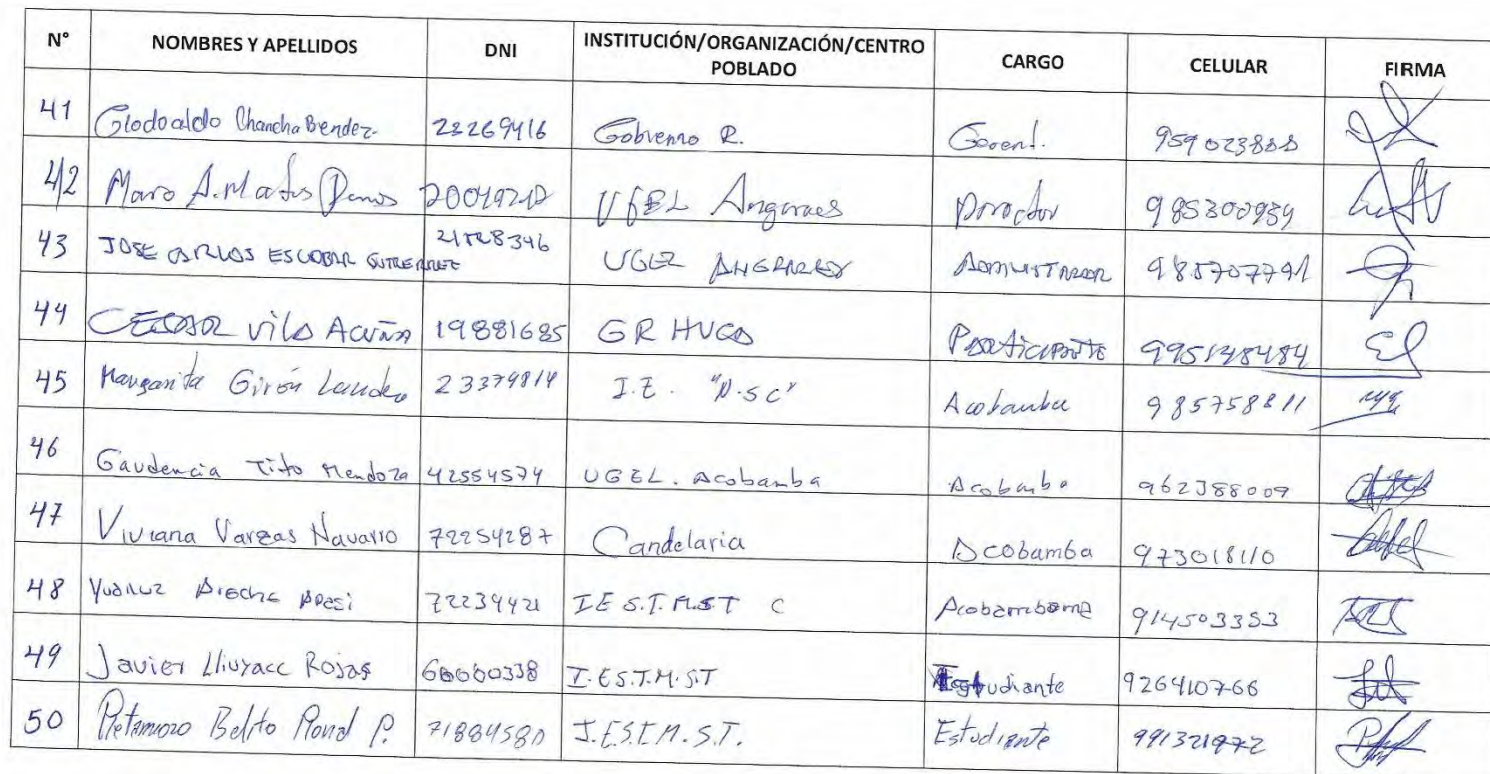 N° NOMBRES Y APELLIDOS DNI INSTITUCIÓN/ORGANIZACIÓN/CENTRO POBLADO CARGO CELULAR FIRMA
41 Glodoaldo Chancha Bendez. 23269416 Gobierno R. Gerent.
42 UGEL Angaraes Director 985300939
43 JOSE CARLOS ESCOBAR GUTIERREZ UGEL ANGARAES ADMINISTRADOR 985707791
44 CESAR Vila Acuña 19881685 GR HUCA Participante 995148484
45 Margarita Girón 23379814 I.E. Acobamba 985758811
46 Gaudencia Tito Mendoza 42554574 UGEL. Acobamba Acobamba 962388009
47 Viviana Vargas Navarro 72254287 Candelaria Acobamba 973018110
48 72239421 914503353
49 Javier Lliuyacc Rojas 60060338 I.E.S.T.M.S.T Estudiante 926410766
50 Belito P. 71884580 I.E.S.T.M.S.T. Estudiante 991321972